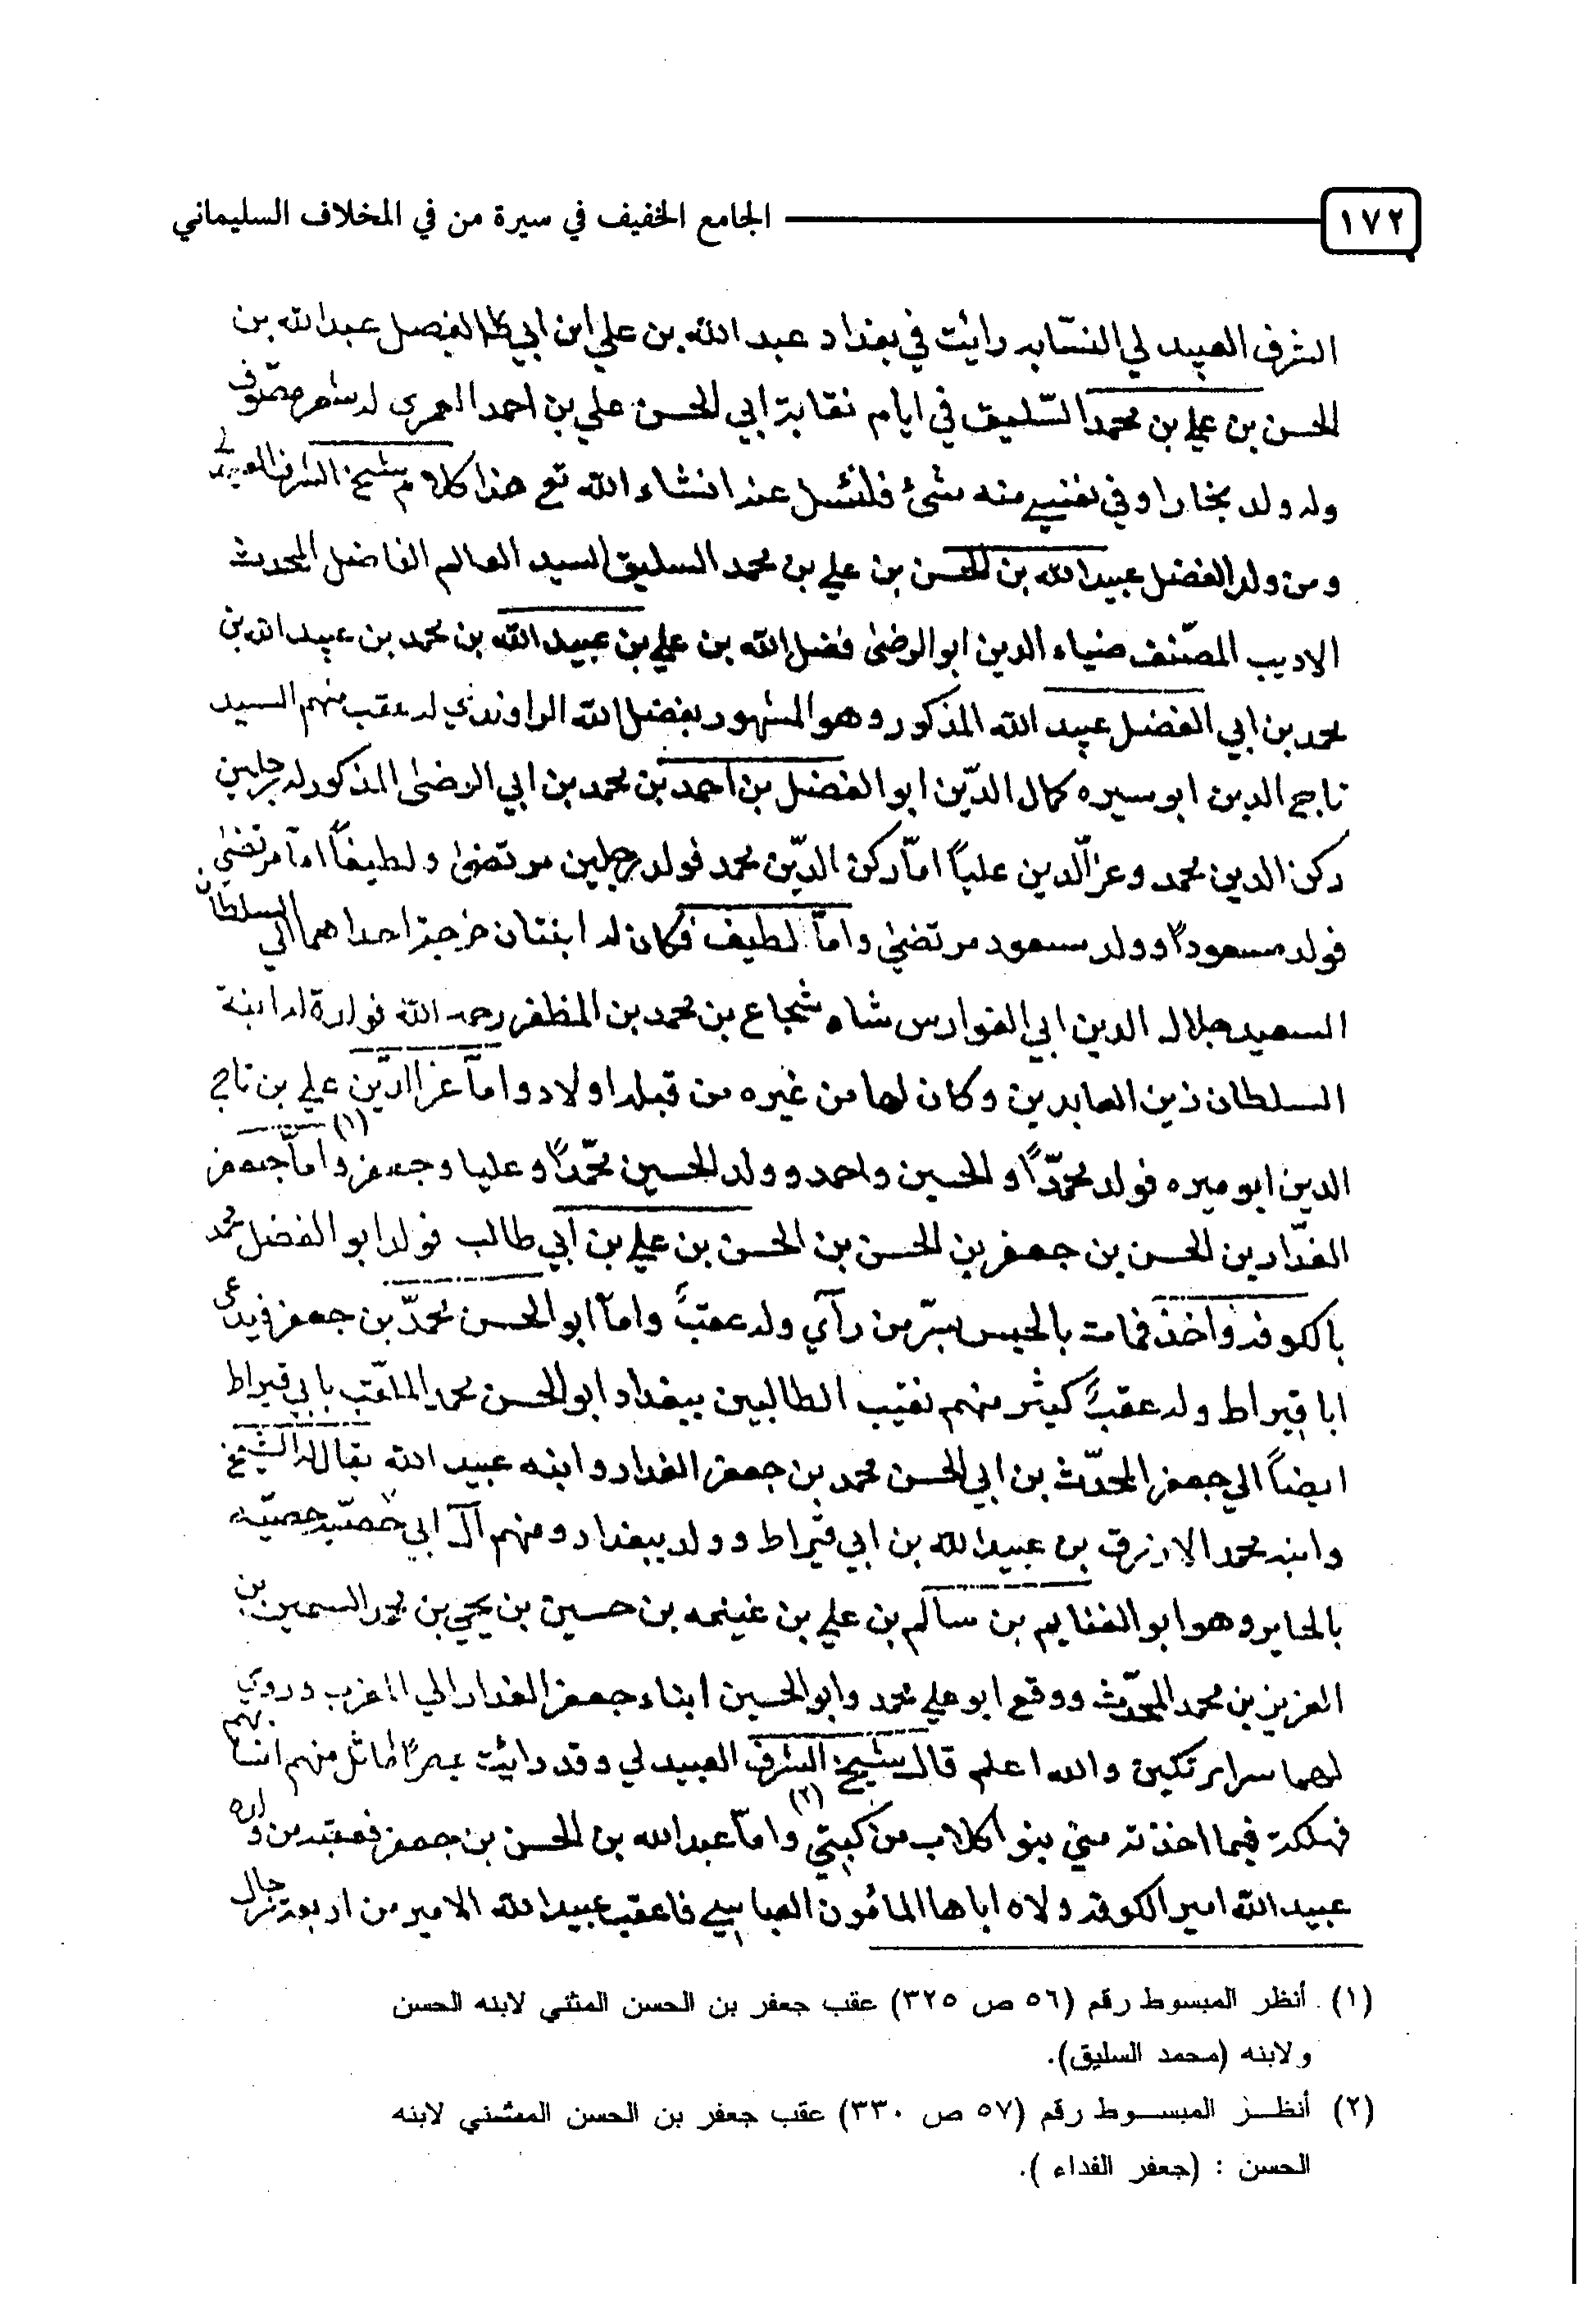 ١٧٢ الجامع الخفيف في سيرة من في المخلاف السليماني
الشرف العبيد لي النسّابه رائيت في بغداد عبد الله بن علي ابن ابي الفضل عبدالله بن
الحسن بن علي بن محمد السّليق في ايام نقابة ابي الحسن علي بن احمد العمري له شعر
وله ولد بخارا وفي نفسي منه شئ فلنسل عنه انشاء الله تع هذا كلام شيخ الشرف العبيدلي
ومن ولد الفضل عبيد الله بن الحسن بن علي بن محمد السليق السيد العالم الفاضل المحدث
الاديب المصّنف ضياء الدين ابو الرضىٰ فضل الله بن علي بن عبيد الله بن محمد بن عبيد الله بن
محمد بن ابي الفضل عبيد الله المذكور وهو المشهور بفضل الله الراوندي له عقب منهم السيد
تاج الدين ابو سيره كمال الدّين ابو الفضل بن احمد بن محمد بن ابي الرضىٰ المذكور له رجلين
ركن الدين محمد وعز الّدين علياً امّا ركن الدّين محمد فولد رجلين مرتضىٰ ولطيفاً اما مرتضىٰ
فولد مسعوداً وولد مسعود مرتضىٰ وامّا لطيف فكان له ابنتان خرجة احداهما الي السلطان
السعيد جلال الدين ابي الفوارس شاه شجاع بن محمد بن المظفر رحمه الله فولدة له ابنة
السلطان زين العابدين وكان لها من غيره من قبله اولاد وامّا عز الدّين علي بن تاج
الدين ابو ميره فولد محمّداً والحسين واحمد وولد الحسين محمّداً وعليا وجعفر (١) وامّا جعفر
الغدّار بن الحسن بن جعفر بن الحسن بن الحسن بن علي بن ابي طالب فولد ابو الفضل محمد
بالكوفه واخذ فمات بالحبس بسرّ من رآي وله عقبً وامّا ابو الحسن محمّد بن جعفر فيدعى
ابا قيراط وله عقبً كيثر منهم نقيب الطالبين ببغداد ابو الحسن محمد الملقب بابي قيراط
ايضاً الي جعفر المحدّث بن ابي الحسن محمد بن جعفر الغدار وابنه عبيد الله يقال له الشيخ
وابنه محمد الازرق بن عبيد الله بن ابي قيراط وولد ببغداد ومنهم آل ابي
بالحاير وهو ابو الغنايم بن سالم بن علي بن غنيمه بن حسين بن يحيي بن محمد السمين بن
العزيز بن محمد المحدّث ووقع ابو علي محمد وابو الحسين ابناء جعفر الغدار الي المغرب وروي
لهما سرار تكين والله اعلم قال شيخ الشرف العبيد لي وقد رائيت بمصر اطائل منهم انسابهم
فهلكت فيما اخذته مني بنو اكلاب من كبتي (٢) وامّا عبد الله بن الحسن بن جعفر فعقبه من ولده
عبيد الله امير الكوفه ولاه اباها المامُون العباسي فاعقب عبيد الله الامير من اربعة رجال
(١) أنظر المبسوط رقم (٥٦ ص ٣٢٥) عقب جعفر بن الحسن المثني لابنه الحسن
ولابنه (محمد السليق).
(٢) أنظر المبسوط رقم (٥٧ ص ٣٣٠) عقب جعفر بن الحسن المثنني لابنه
الحسن : (جعفر الغداء ).